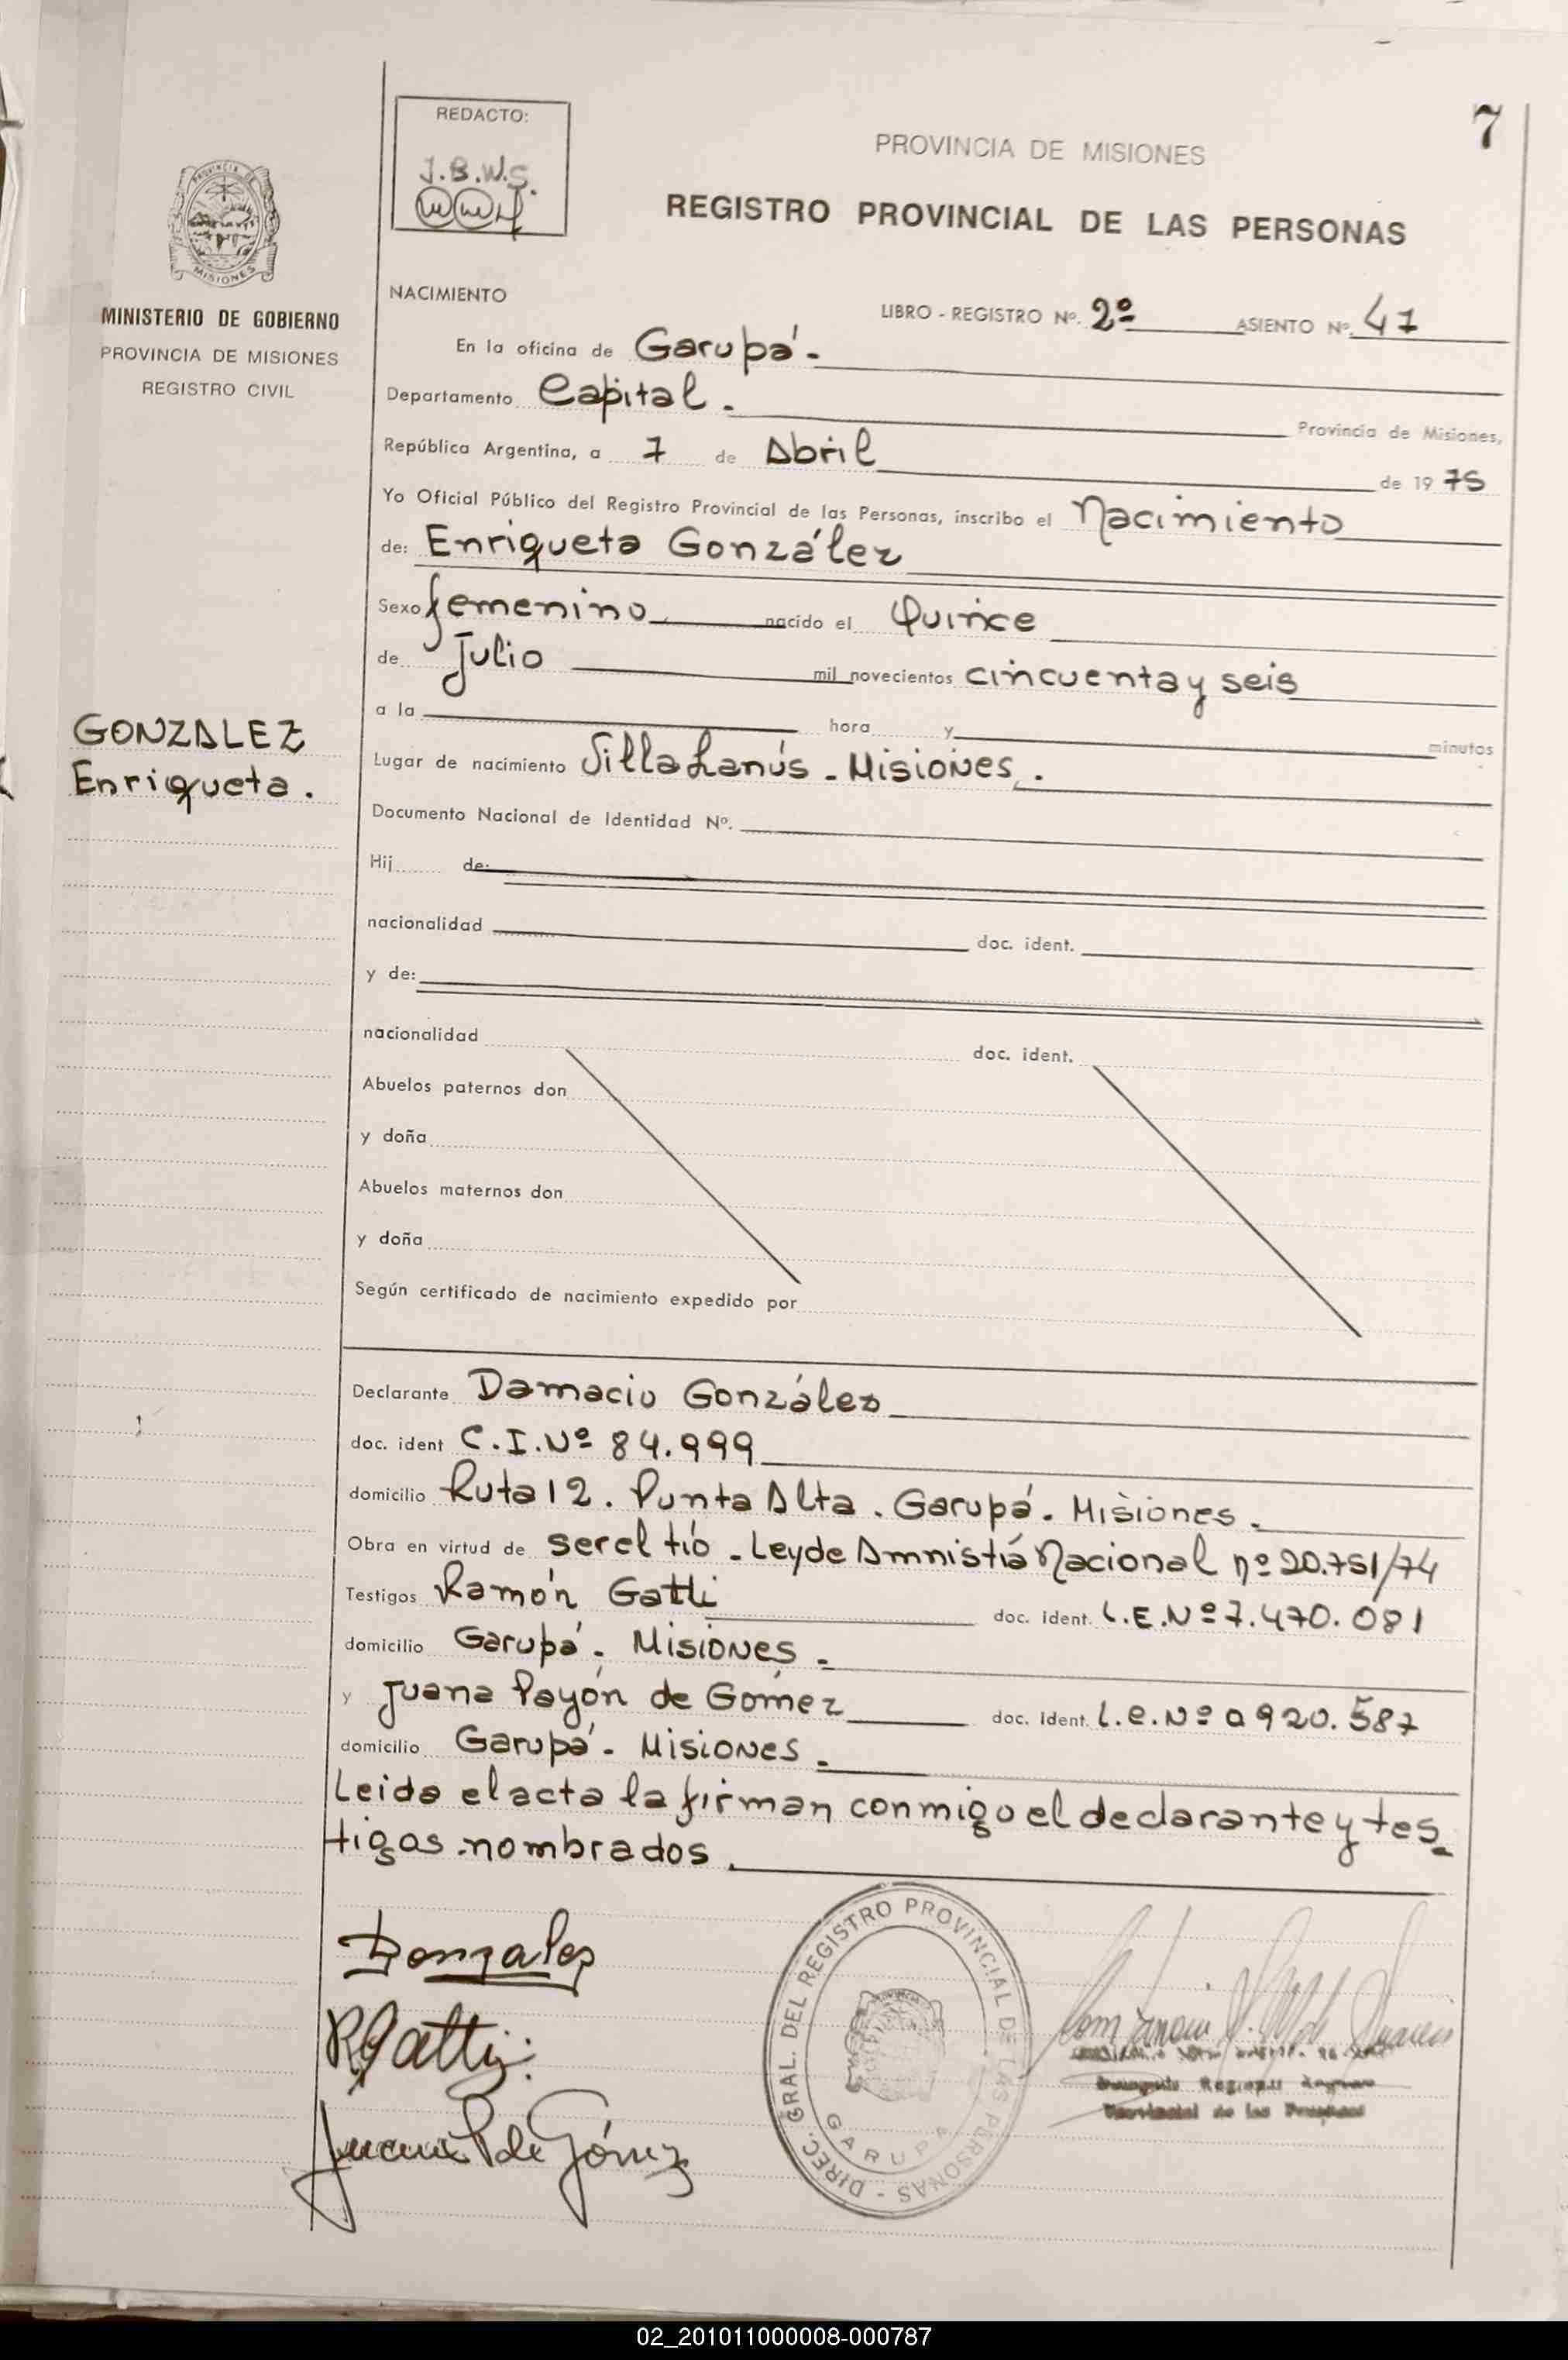 7
REDACTO:
J.B.W.S.
PROVINCIA DE MISIONES
REGISTRO PROVINCIAL DE LAS PERSONAS
PROVINCIA DE
MISIONES
MINISTERIO DE GOBIERNO
PROVINCIA DE MISIONES
REGISTRO CIVIL
NACIMIENTO
LIBRO - REGISTRO Nº. 2º ASIENTO Nº. 41
En la oficina de Garupá.-
Departamento Capital.- Provincia de Misiones,
República Argentina, a 7 de Abril de 1975
Yo Oficial Público del Registro Provincial de las Personas, inscribo el Nacimiento
de: Enriqueta González
Sexo femenino nacido el Quince
de Julio mil novecientos cincuenta y seis
a la hora y minutos
GONZALEZ
Enriqueta.
Lugar de nacimiento Villa Lanús - Misiones.
Documento Nacional de Identidad Nº.
Hij de:
nacionalidad doc. ident.
y de:
nacionalidad doc. ident.
Abuelos paternos don
y doña
Abuelos maternos don
y doña
Según certificado de nacimiento expedido por
Declarante Damacio González
doc. ident C.I.Nº 84.999
domicilio Ruta 12. Punta Alta. Garupá. Misiones.
Obra en virtud de ser el tío - Ley de Amnistía Nacional nº 20.751/74
Testigos Ramón Gatti doc. ident. L.E.Nº 7.470.081
domicilio Garupá.- Misiones.-
y Juana Payón de Gómez doc. ident. L.e.Nº 0920.587
domicilio Garupá.- Misiones.-
Leida el acta la firman conmigo el declarante y tes-
tigos nombrados.
Gonzalez
RGatti
Juana P de Gómez
DIREC. GRAL. DEL REGISTRO PROVINCIAL DE LAS PERSONAS -
GARUPA
Provincial de las Personas
02_201011000008-000787